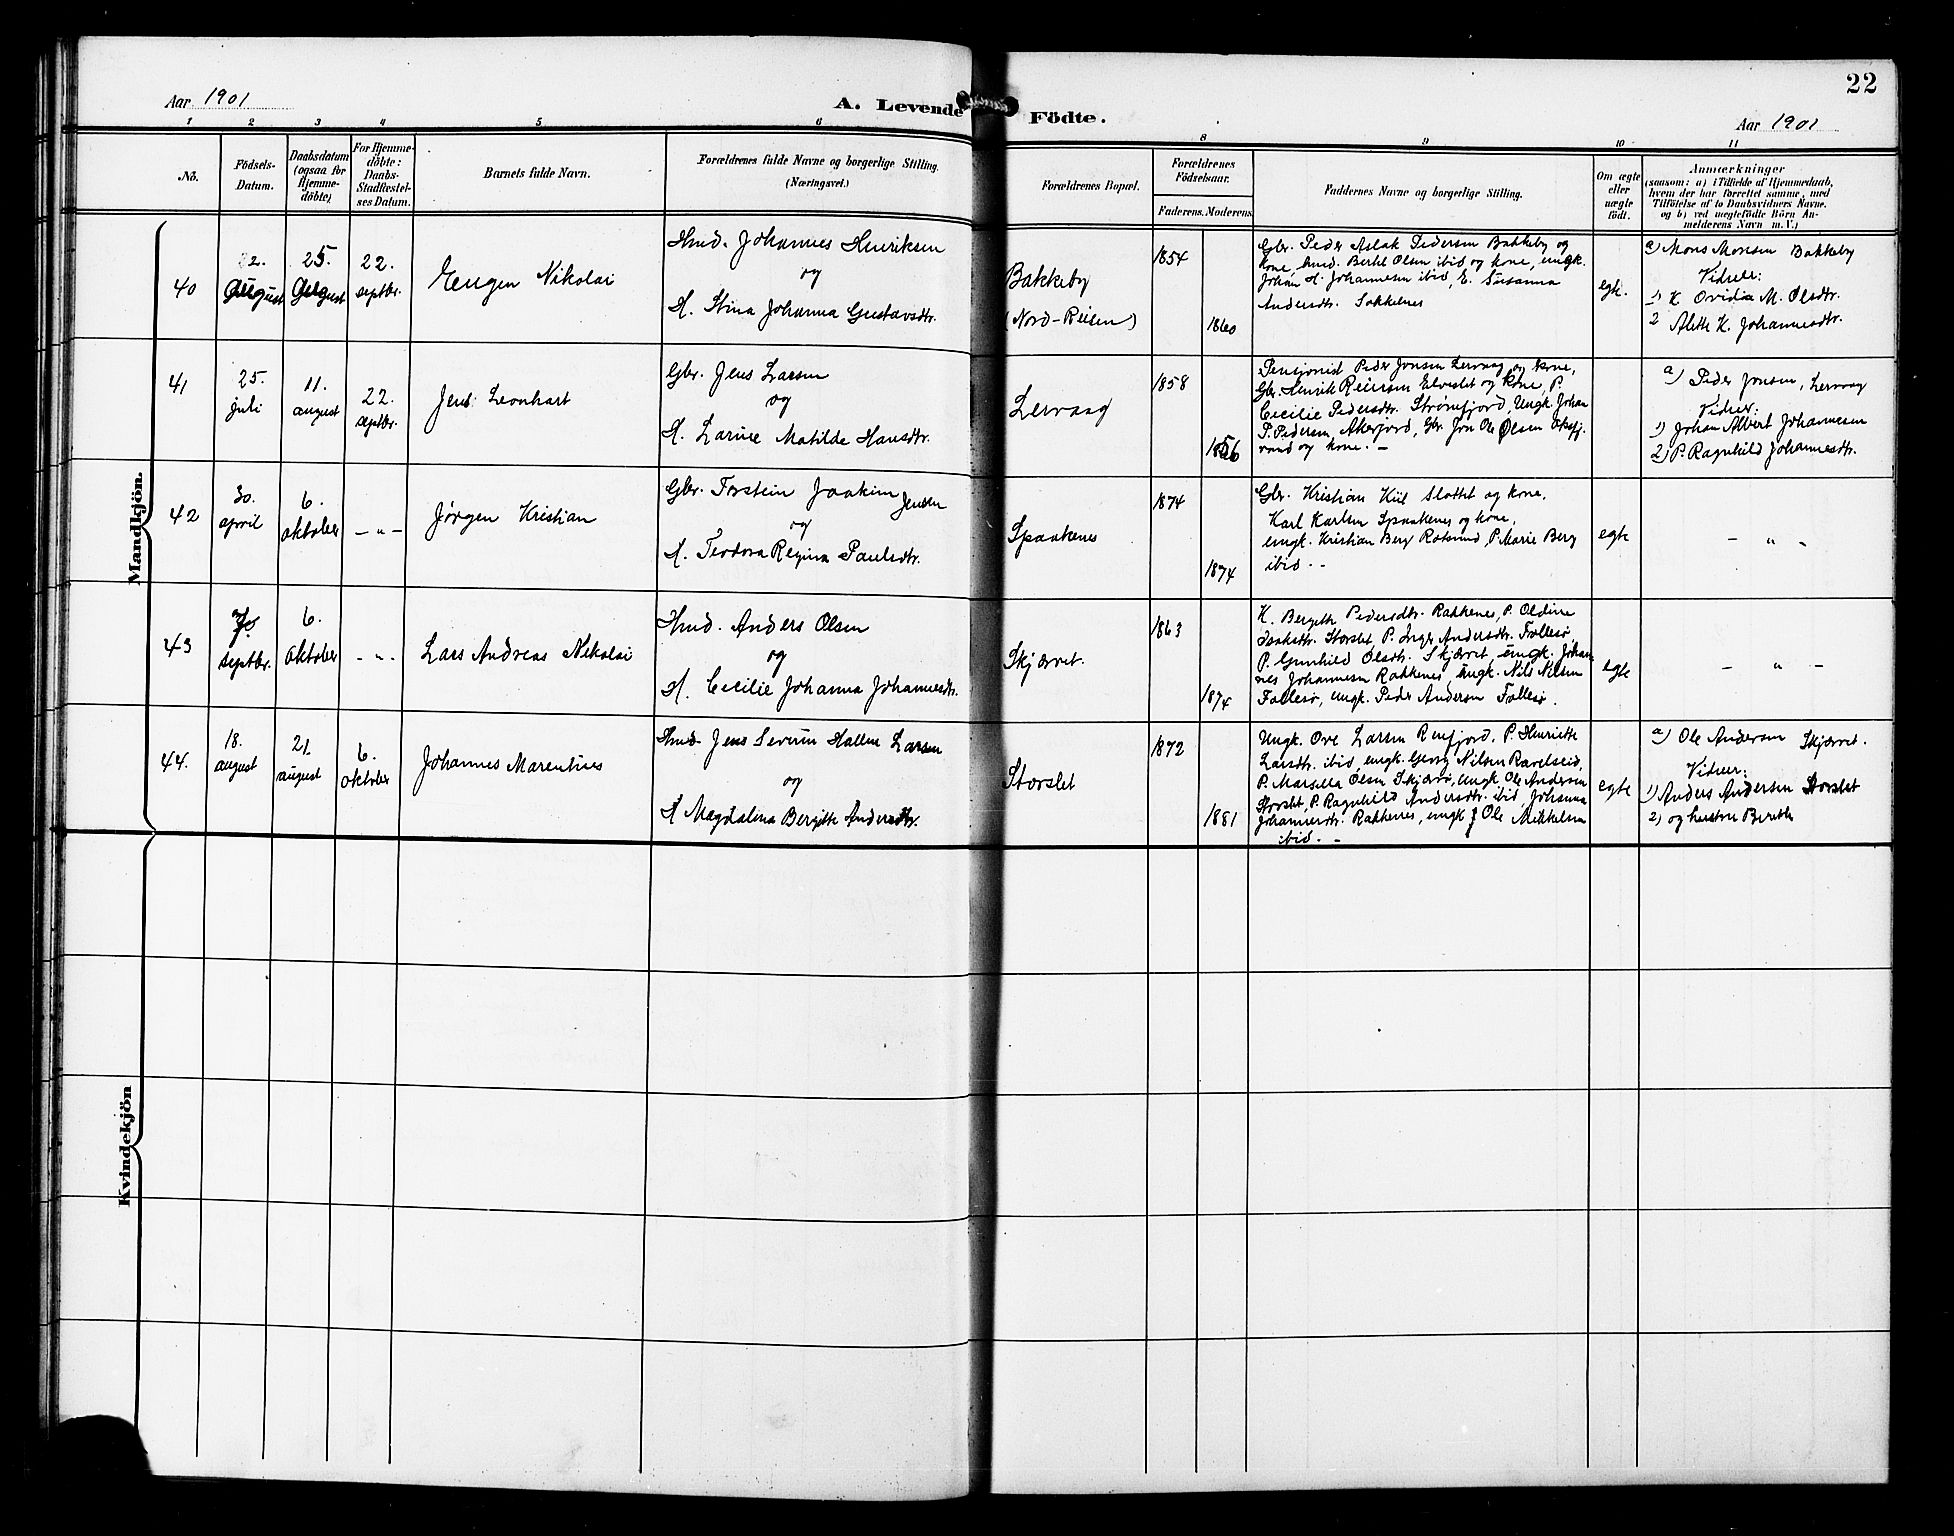 22
Aar 1901
A. Levende Födte.
Aar 1901
1 2 3 4 5 6 8 9 10 11
No.
Födsels-
Datum.
Daabsdatum
(ogsaa for
Hjemme-
döbte)
For Hjemme-
döbte:
Daabs-
Stadfæstel-
ses Datum.
Barnets fulde Navn.
Forældrenes fulde Navne og borgerlige Stilling.
(Næringsvei.)
Forældrenes Bopæl.
Forældrenes
Födselsaar.
Faderens. Moderens.
Faddernes Navne og borgerlige Stilling.
Om ægte
eller
uægte
født.
Anmærkninger
(saasom: a) i Tilfælde af Hjemmedaab,
hvem der har forrettet samme, med
Tilföielse af to Daabsvidners Navne.
og b) ved uegtefödte Börn An-
melderens Navn m. V.)
Mandkjön.
40
22.
August
25.
August
22.
septbr.
Eugen Nikolai
Hmd. Johannes Henriksen
og
H. Stina Johanna Gustavsdtr.
Bakkeby
(Nord-Reisen)
1854
1860
Gbr. Peder Aslak Pedersen Bakkeby og
kone, hmd. Bertel Olsen ibid og kone, ungk.
Johan A. Johannesen ibid, E. Susanna
Andersdtr. Sokkelnes
egte.
a) Mons Monsen Bakkeby
Vidner:
1) K Ovidia M. Olsdtr.
2 Alette K. Johannesdtr.
41
25.
juli
11.
august
22.
septbr.
Jens Leonhart
Gbr. Jens Larsen
og
H. Larine Matilde Hansdtr.
Lervaag
1858
1856
Pensjonist Peder Jonsen Lervaag og kone,
Gbr. Henrik Reiersen Elveslet og kone, P.
Cecilie Pedersdtr. Strømfjord, Ungk. Johan
P. Pedersen, Akerfjord, Gbr. Jon Ole Olsen Oksfj.
vand og kone. –
a) Peder Jonsen, Lervaag
Vidner:
1) Johan Albert Johannesen
2) P. Ragnhild Johannesdtr.
42
30.
april
6.
oktober
– " –
Jørgen Kristian
Gbr. Torstein Joakim Jensen
og
H. Teodora Regina Paulsdtr.
Spaakenes
1874
1874
Gbr. Kristian Kiil Slottet og kone,
Karl Karlsen Spaakenes og kone,
ungk. Kristian Berg Rotsund, P. Marie Berg
ibid. -
egte
– " –
43
septbr.
6.
oktober
- " -
Lars Andreas Nikolai
Hmd. Anders Olsen
og
H. Cecilie Johanna Johannesdtr.
Skjærvet.
1863
1874
K. Bergitte Pedersdtr. Rakkenes, P. Oldine
Isaksdtr. Storslet P. Inger Andersdtr. Follesø,
P. Gunhild Olsdtr. Skjærvet, ungk. Johan-
nes Johannesen Rakkenes, ungk. Nils Nilsen
Follesø, ungk. Peder Andersen Follesø.
egte
– " –
44.
18.
august
21.
august
6.
oktober
Johannes Marentius
Hmd. Jens Severin Hallen Larsen
og
H Magdalena Bergitte Andersdtr.
Storslet
1872
1881
Ungk. Ove Larsen Reinfjord. P. Henriette
Larsdtr. ibid, ungk. Georg Nilsen Ravelseid,
P. Marsella Olsen Skjærvø, ungk. Ole Andersen
Storslet, P. Ragnhild Andersdtr. ibid, Johanna
Johannesdtr. Rakkenes, ungk J Ole Mikkelsen
ibid. -
egte
a) Ole Andersen Skjærvet.
Vidner:
1) Anders Andersen Storslet
2) og hustru Berethe
Kvindekjön